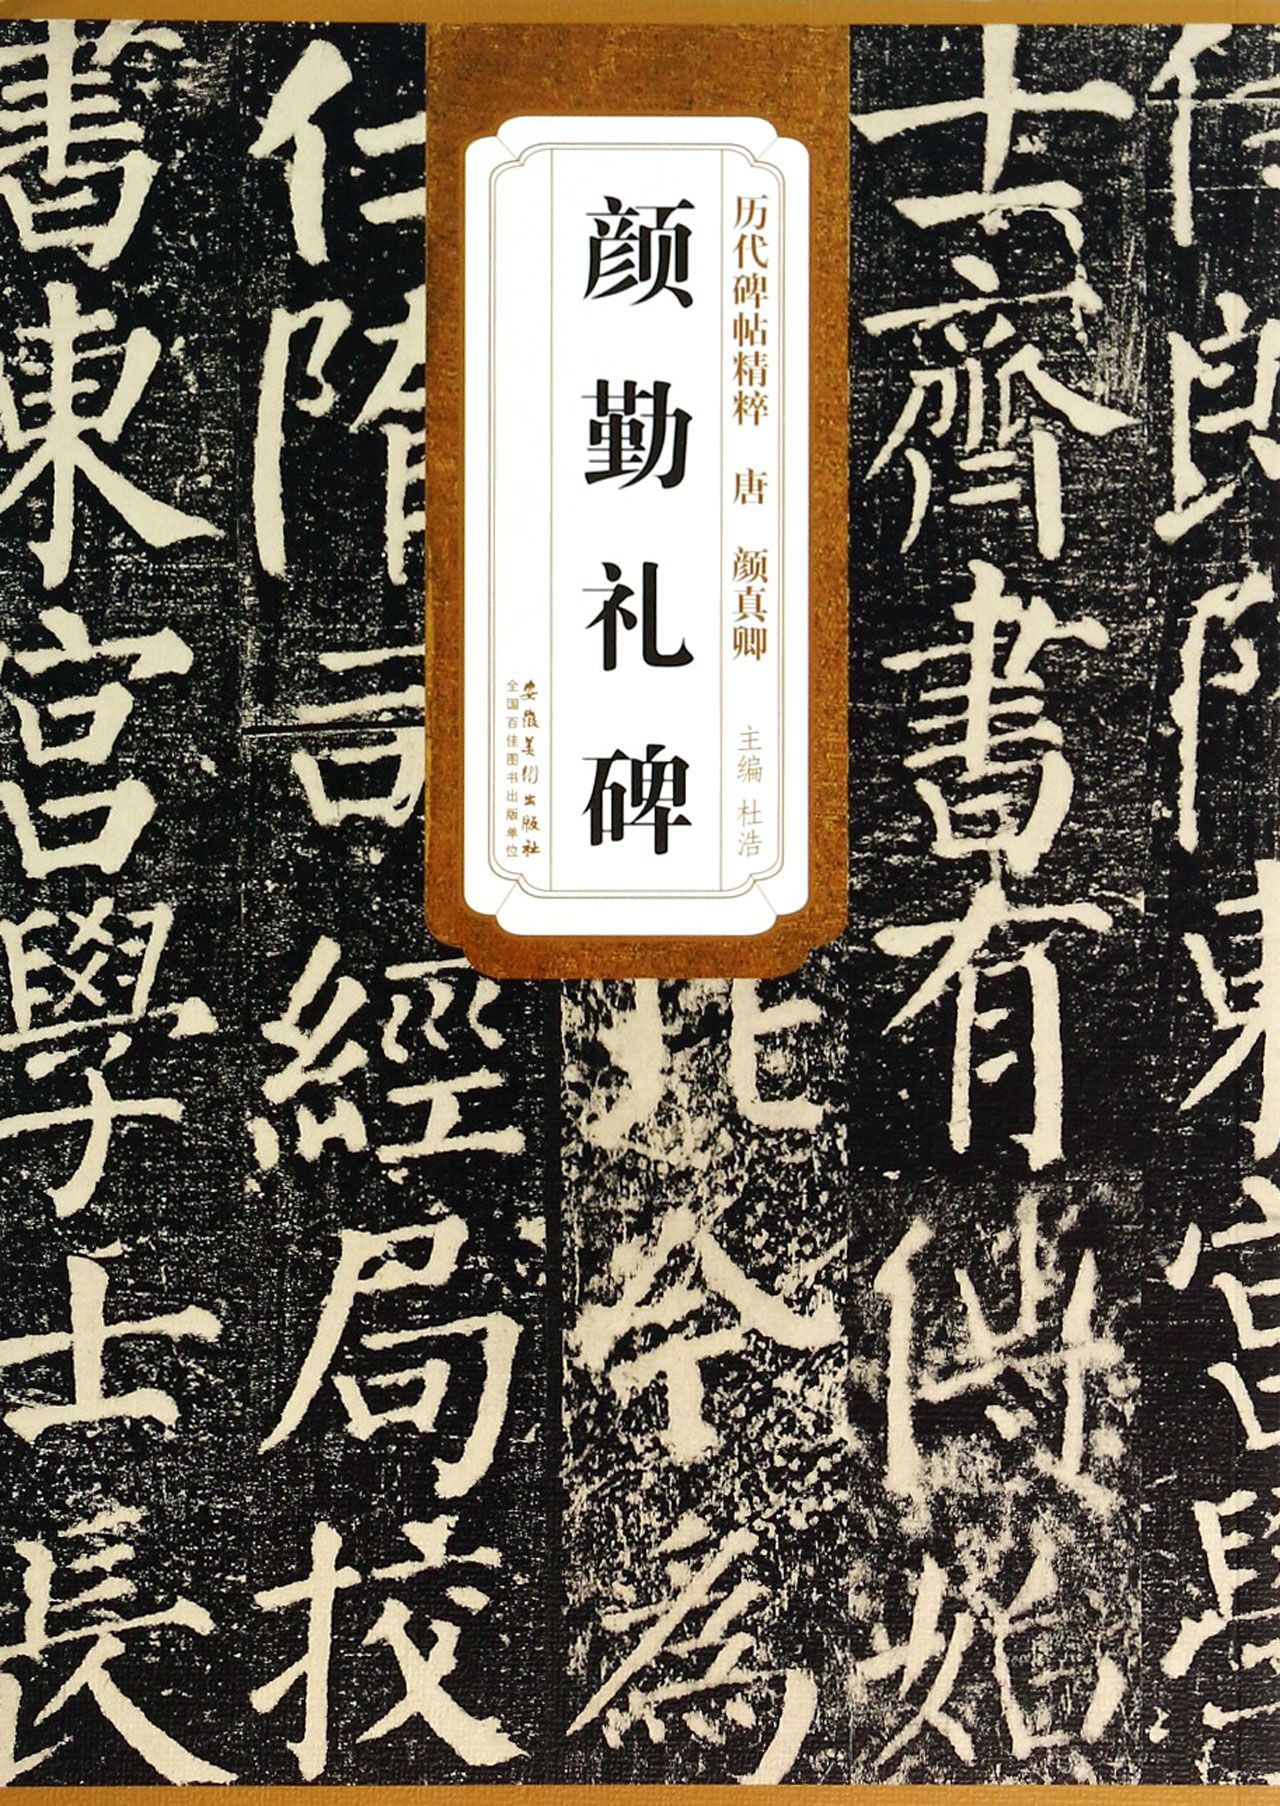 侍郎隋東宮學
士齊書有傳始
北今為
仕隋司經局校
書東宮學士長
历代碑帖精粹 唐 颜真卿
主编 杜浩
颜勤礼碑
安徽美术出版社
全国百佳图书出版单位